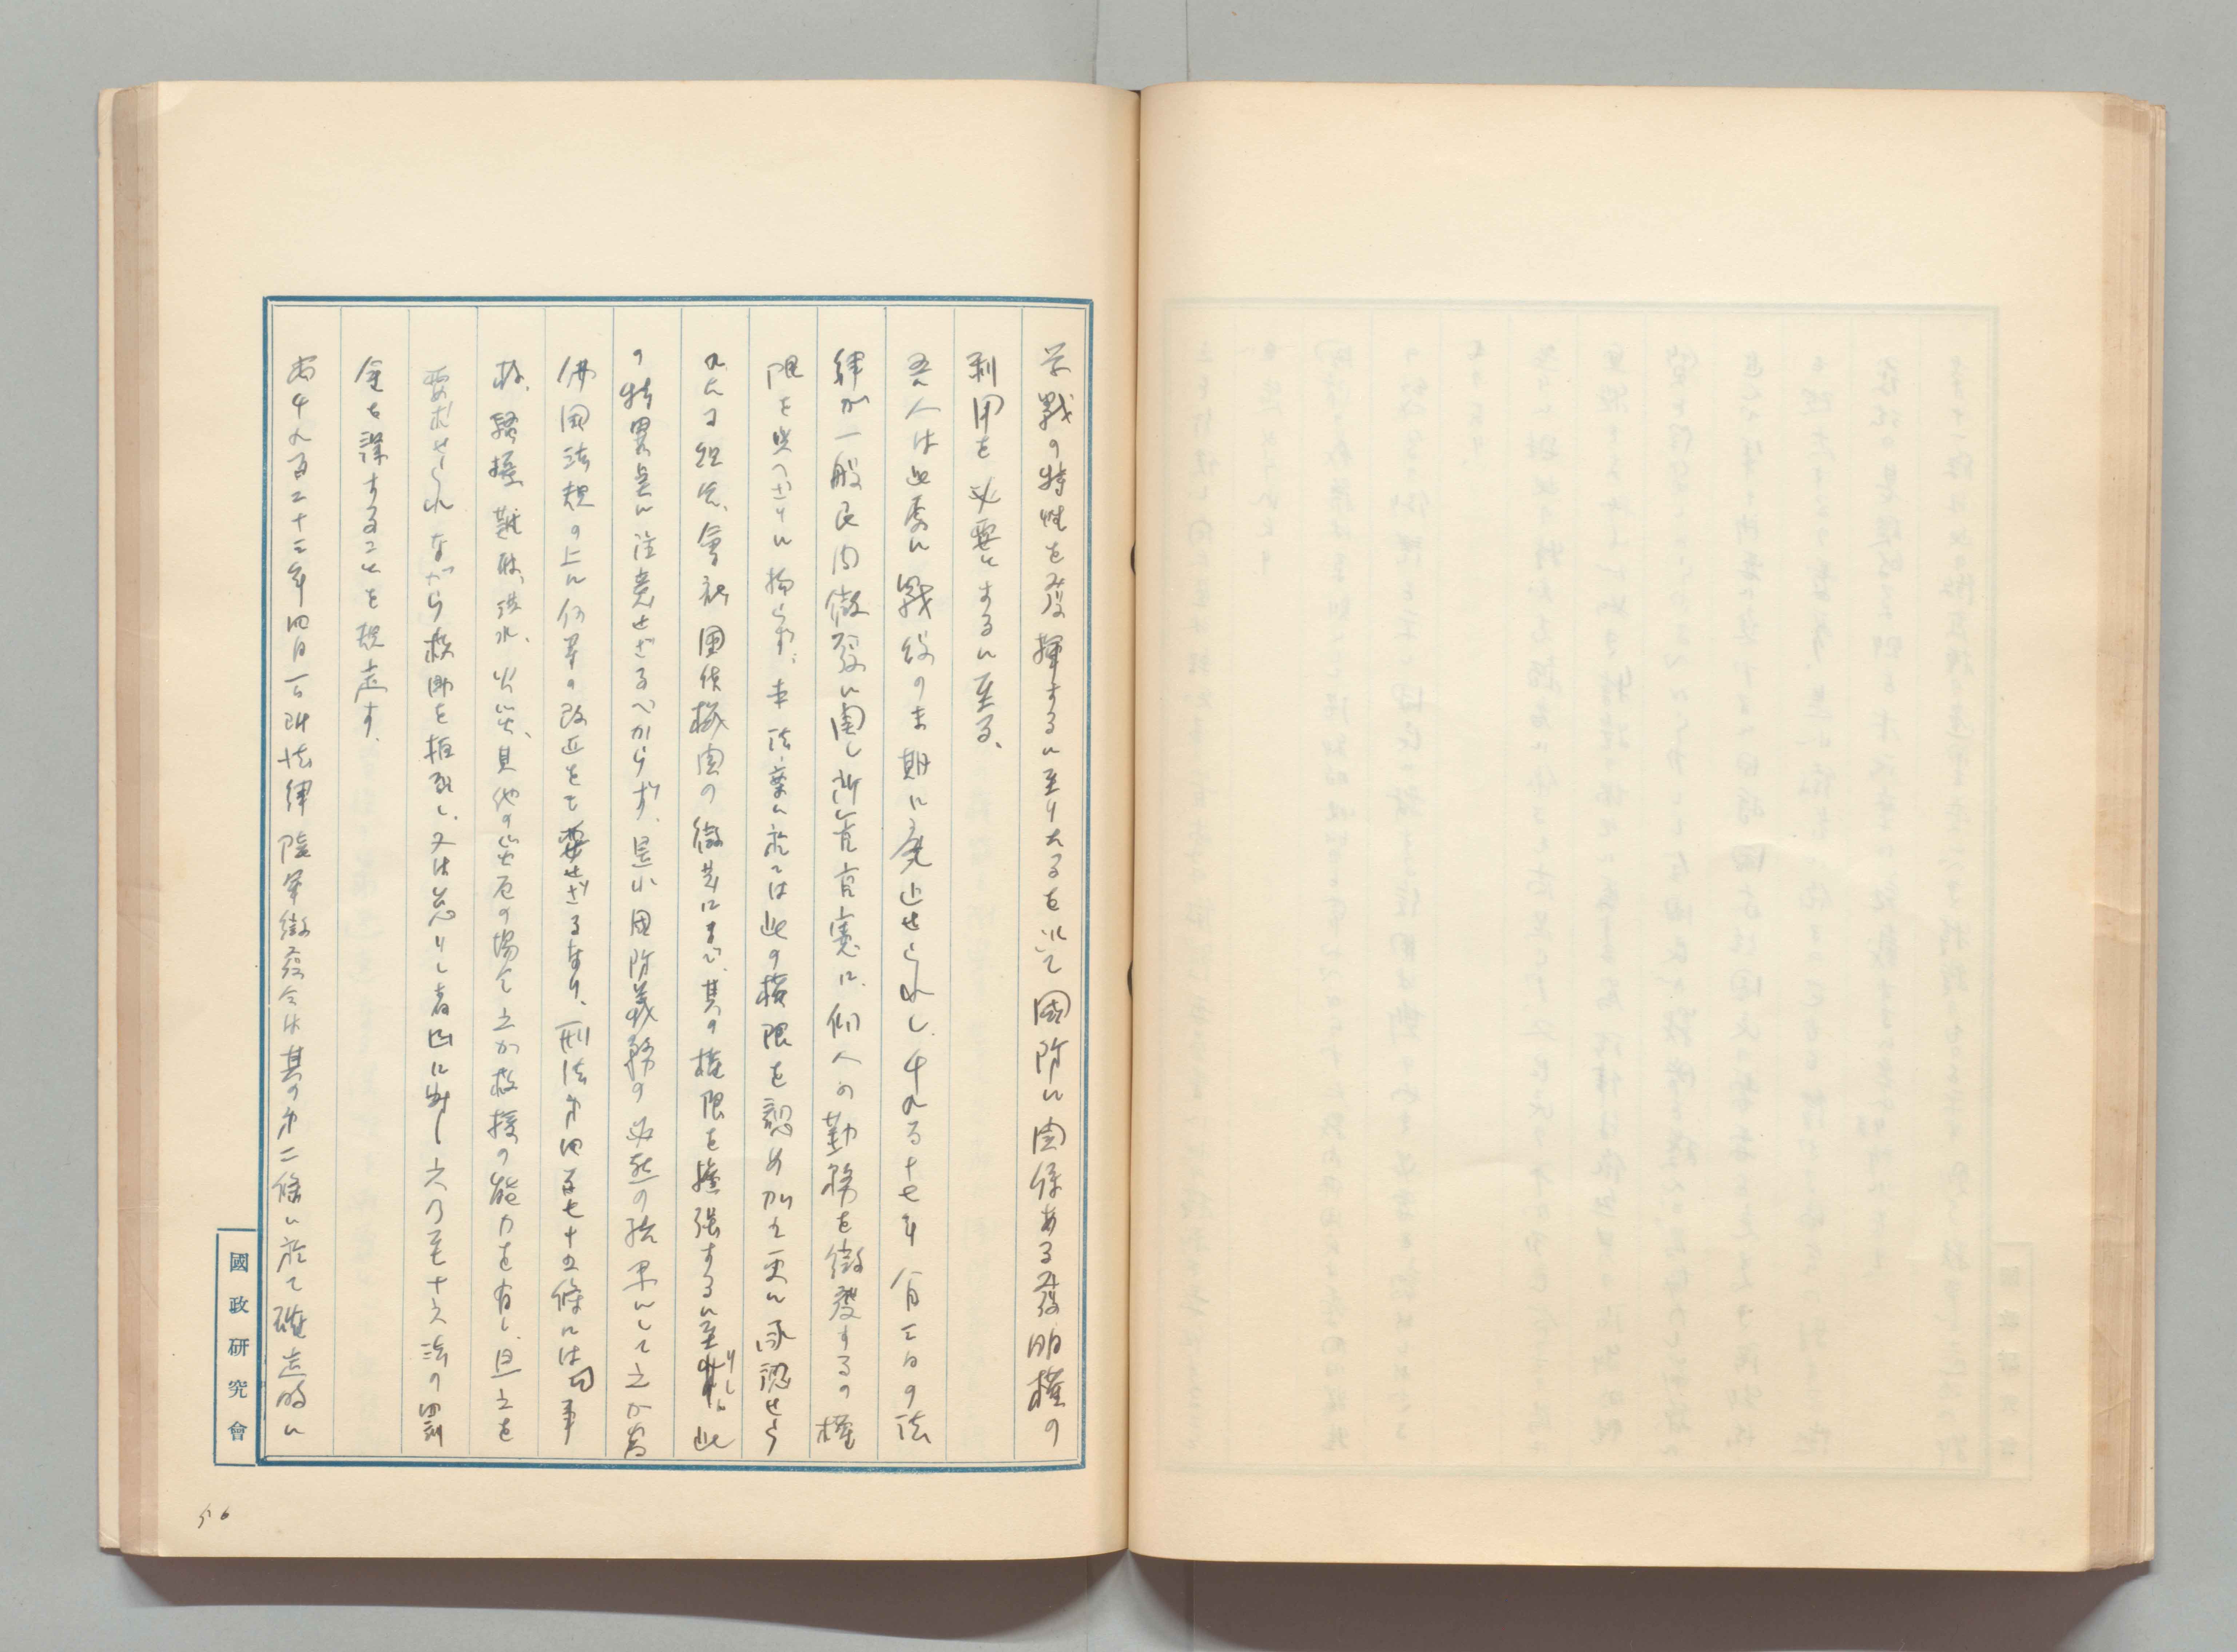 学戦の特性を発揮するに至りたるを以て国防に関係ある発明権の
利用を必要とするに至る、
吾人は此処に戦役の末期に廃止せられし、千九百十七年八月三日の法
律が一般民間徴発に関し所管官憲に、個人の勤務を徴発するの権
限を与へざりしに拘らず、本法案に於ては此の権限を認め加之更に承認せら
れたる組合、會社、団体機関の徴発にまで、其の権限を拡張するに至りし、此
の特異点に注意せざるべからず、是れ国防義務の必然の結果にして之が為
佛国法規の上に何等の改正をも要せざるなり、刑法第四百七十五條には同事
故、騒擾、難破、洪水、火災、其他の災厄の場合之が救援の能力を有し、且之を
要求せられながら救助を拒絶し、又は怠りし者に対し六乃至十六法の罰
金を課することを規定す、
尚千九百二十三年四月一日附法律陸軍徴発令は其の第二條に於て確定的に
國政研究會
56